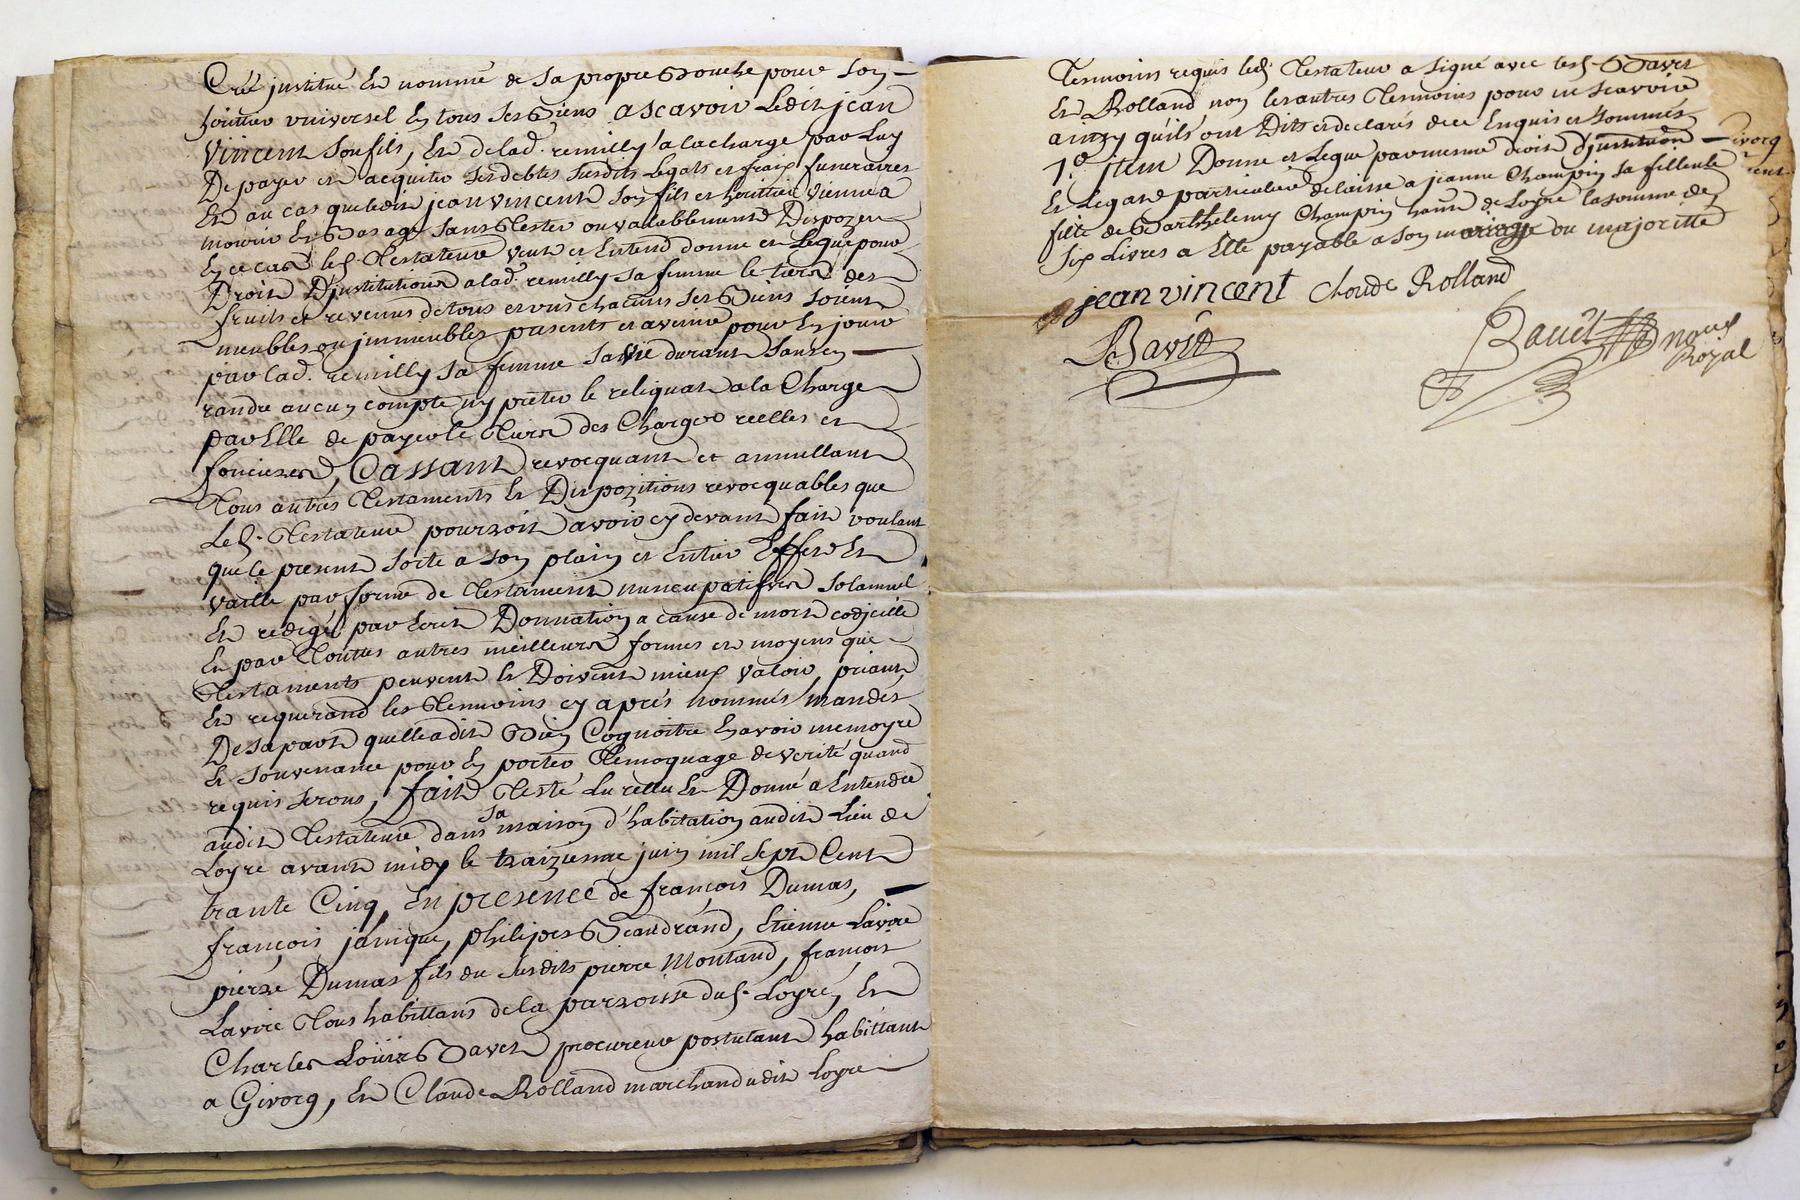 Créé institué et nommé de sa propre Bouche pour son
héritier universel en tous ses Biens ascavoir Ledit jean
Vincent son fils, et de lad. remilly a la charge par Luy
De payer et acquitter ses debtes susdits Legats et fraix funeraires
Et au cas que ledit jean vincent son fils et heritier vienne a
mourir En Bas age sans Tester ou vallablement Dispozer
En ce cas led. Testateur veut et Entend donne et Legue pour
Droit D'justitution a lad. remilly sa femme le tiers des
fruits et revenus de tous et uns chacuns ses Biens soient
meubles ou jmmeubles presents et avenir pour En jouir
par lad. remilly sa femme sa vie durant sans en
randre aucun compte ny preter le reliquat a la Charge
par Elle de payer le Tiers des Charges reelles et
foncieres, Cassant revocquant et annullant
Tous autres Testaments et Dispozitions revocquables que
Led. Testateur pourroit avoir cy devant fait voulant
que le present sorte a son plain et Entier Effet Et
Vaille par forme de Testament nuncupatif et solamnel
Et redigé par Ecrit Donnation a cause de mort codjcille
En par Touttes autres meilleures formes et moyens que
Testaments peuvent et Doivent mieux valoir, priant
Et requerand les Tesmoins cy aprés nommés mandés
De sa part quelle a dit Bien Cognoitre En avoir memoyre
Et souvenance pour En porter Temoquage de verité quand
requis serons, fait Testé Lu rellu Et Donné a Entendre
audit Testateur dans sa maison d'habitation audit Lieu de
Loyre avant midy le traizieme juin mil sept Cent
trante Cinq, En presence de françois Dumas,
françois janique, philipes Beaudrand, Etienne Lavire
pierre Dumas fils du susdits pierre Montand, françois
Lavire Tous habittans de la parroisse dud. Loyre, Et
Charles Loüis Bavet procureur postulant habittant
a Givocq, Et Claude Rolland marchand udit Loyre
Tesmoins requis led. Testateur a signé avec lesd. Bavet
Et Rolland non les autres Tesmoins pour ne scavoire
ainsy qu'ils ont Dits et declarés de ce Enquis et sommés
1.° jtem Donne et Legue par mesme droit d'justitution
Et Legat particulier delaisse a jeanne Champin sa filleule
fille de Barthelemy Champin hatt de Loyre la somme de
six Livres a Elle payable a son mariage ou majoritté
jean vincent Claude Rolland
Bavet
Bauët nore
Royal